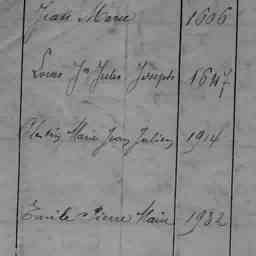 Jean Marie 1606
Louis Jn Jules Joseph 1647
Marie Jean Julien 1914
Emile Pierre Marie 1932